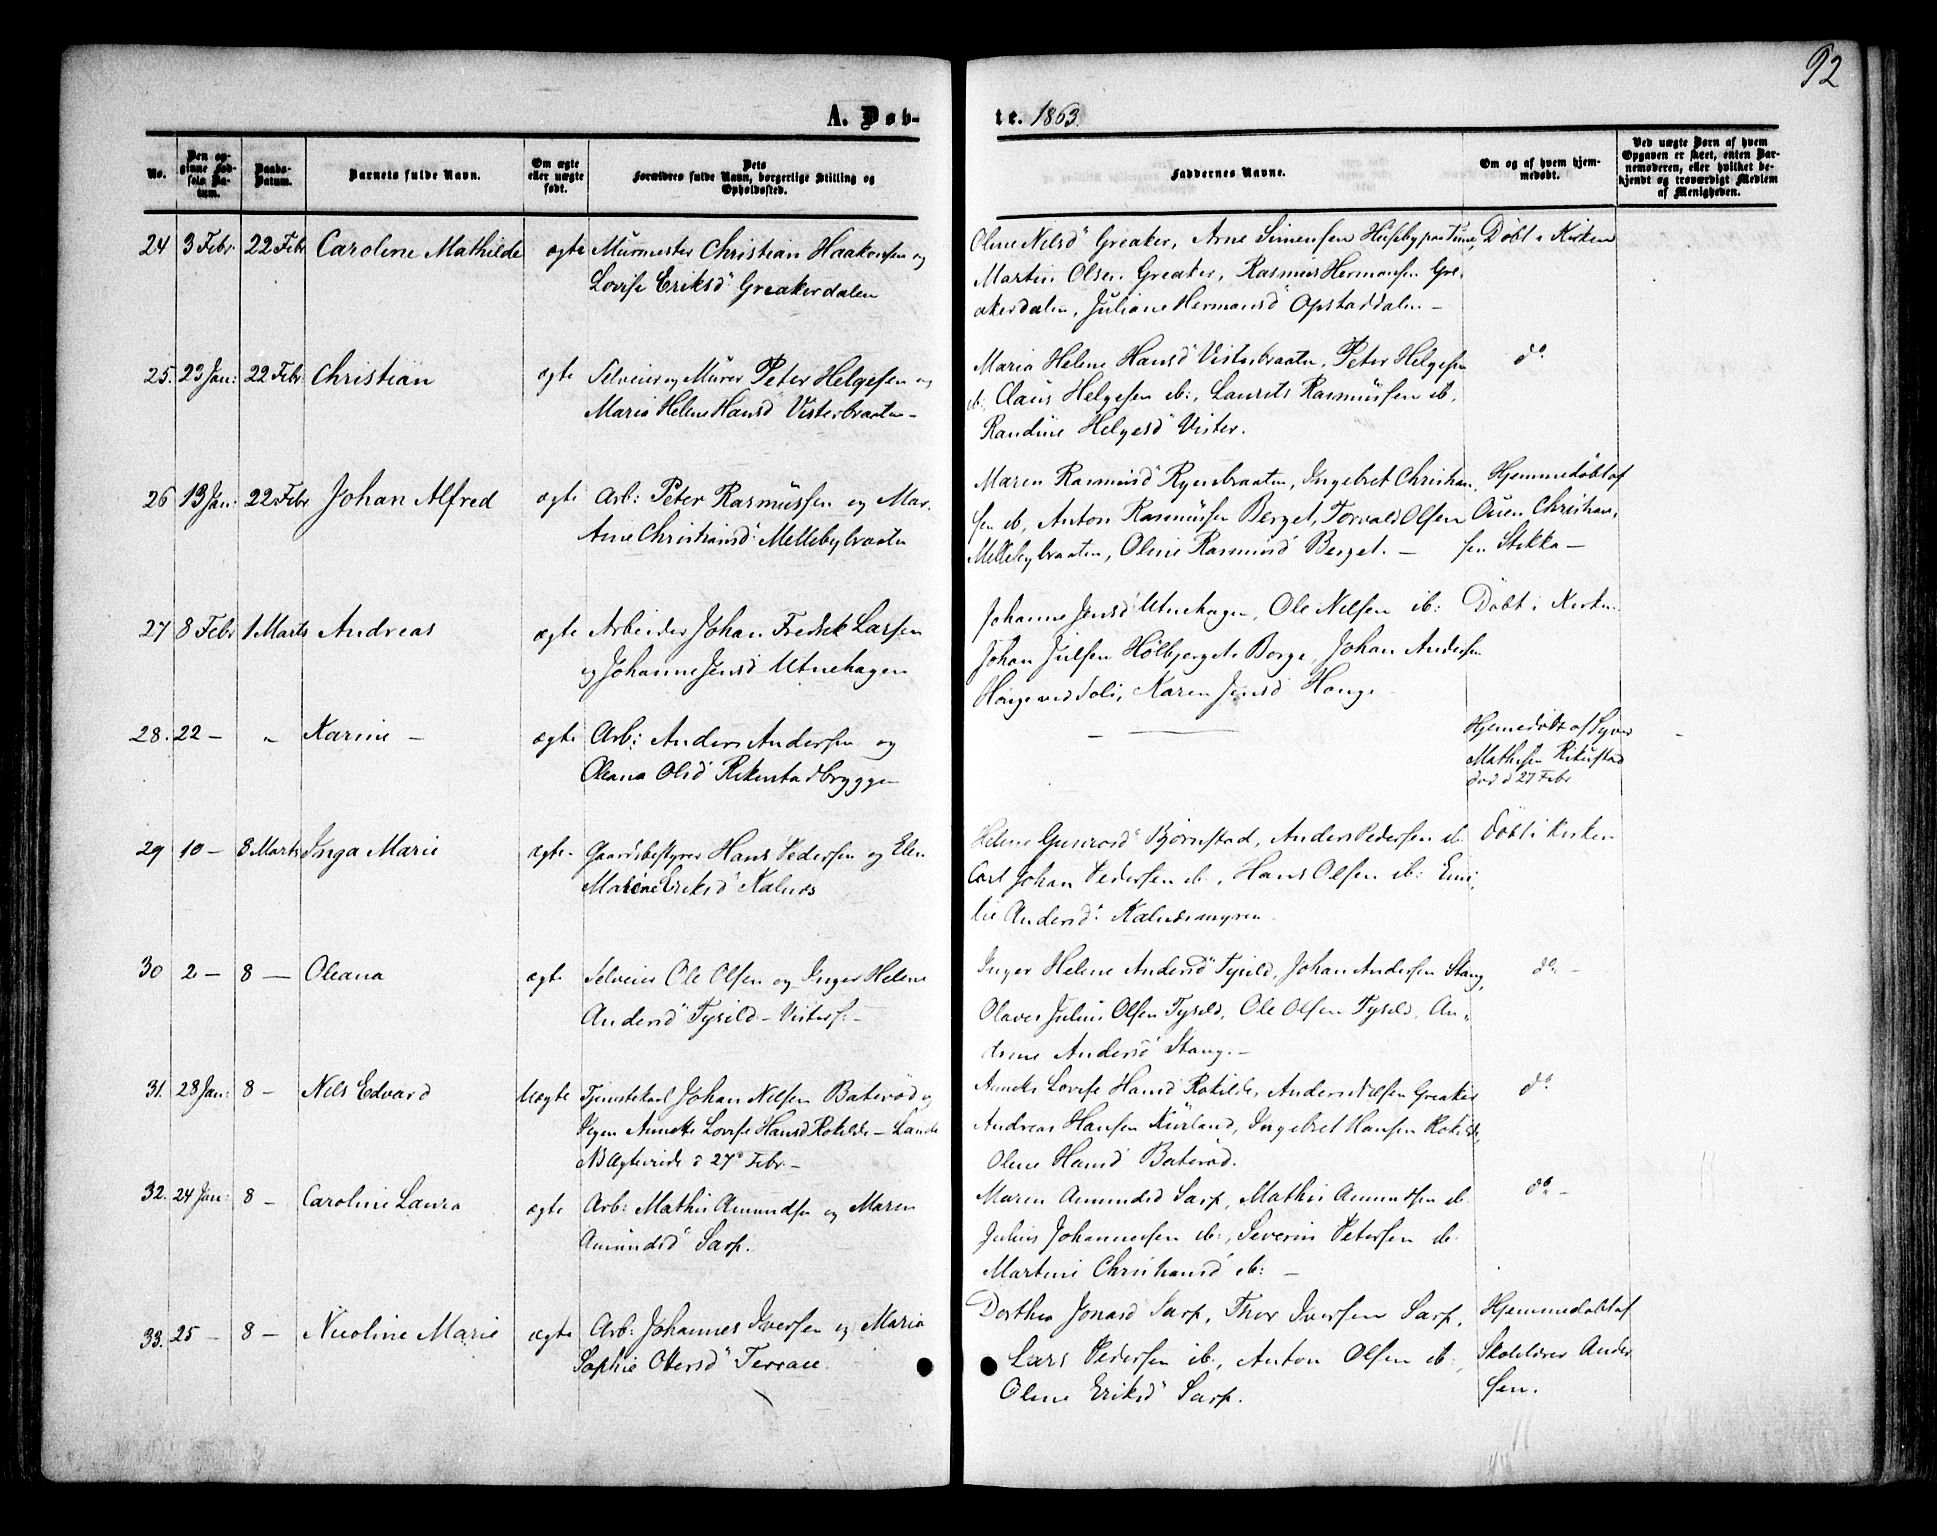 92
A. Døb-
te. 1863.
No.
Den op-
givne Fød-
sels Da-
tum.
Daabs-
Datum.
Barnets fulde Navn.
Om ægte
eller uægte
født.
Dets
Forældres fulde Navn, borgerlige Stilling og
Opholdssted.
Faddernes Navne.
Om og af hvem hjem-
medøbt.
Ved uægte Børn af hvem
Opgaven er skeet, enten Bar-
nemoderen, eller hvilket be-
kjendt og troværdigt Medlem
af Menigheden.
24 3 Febr. 22 Febr Caroline Mathilde ægte Murmester Christian Haakonsen og
Lovise Eriksd Greakerdalen
Oline Nilsd Greaker, Arne Simensen
Martin Olsen Greaker, Rasmus Hermansen Gre-
akerdalen, Juliane Hermansd Opstaddalen -
Døbt i Kirken
25. 23 Jan: 22 Febr Christian ægte Selveier og Murer Peter Helgesen og
Maria Helene Hansd Visterbraaten -
Maria Helene Hansd Visterbraaten, Peter Helgesen
ib:, Claus Helgesen ib:, Laurits Rasmussen ib,
Randine Helgesd Vister.
do
26 13 Jan: 22 Febr Johan Alfred ægte Arb: Peter Rasmussen og Mar.
Anne Christiansd: Mellebybraaten
Maren Rasmusd Ryenbraaten, Ingebret Christian-
sen ib, Anton Rasmussen Berget, Torvald Olsen
Mellebybraaten, Oline Rasmusd Berget. -
Hjemmedøbt af
Ouen Christian-
sen Stikka -
27 8 Febr 1 Marts Andreas ægte Arbeider Johan Fredrik Larsen
og Johanne Jensd Utnehagen
Johanne Jensd Utnehagen, Ole Nilsen ib:
Johan Julsen Holbjerget i Borge, Johan Andersen
Hauge ved Soli, Karen Jensd Hauge
Døbt i Kirken
28. 22 - " Karine - ægte Arb: Anders Andersen og
Oleana Olsd Rikenstadbryggen
- -
Hjemedøbt af Syver
Mathisen Rikustad
død d 27 Febr
29 10 - 8 Marts Inga Marie ægte - Gaardsbestyrer Hans Pedersen og Elen
Malene Eriksd Kalnæs
Helene Bjørnstad, Anders Pedersen ib
Carl Johan Pedersen ib, Hans Olsen ib: Emi-
lie Andersd: Kalnæsmyren
Døbt i Kirken
30 2 - 8 - Oleana ægte Selveier Ole Olsen og Inger Helene
Andersd Tysild - Visterf: -
Inger Helene Andersd Tysild, Johan Andersen Stang,
Olaves Julius Olsen Tysild, Ole Olsen Tysild, An-
drine Andersd Stang. -
do -
31. 28 Jan: 8 - Nils Edvard Uægte Tjenestekarl Johan Nilsen Baterød og
Pigen Annette Lovise Hansd Rokilde -
NB Ægteviede d 27de Febr. -
Annette Lovise Hansd Rokilde, Anders Nilsen Greaker
Andreas Hansen Kurland, Ingebret Hansen Rokilde,
Oline Hansd Baterød.
do
32. 24 Jan: 8 - Caroline Laura ægte Arb: Mathis Amundsen og Maren
Amundsd Sarp.
Maren Amundsd Sarp, Mathis Amundsen ib.
Julius Johannesen ib:, Severin Petersen ib.
Martine Christiansd ib: -
do -
33. 25 - 8 - Nicoline Marie ægte Arb: Johannes Iversen og Maria
Sophie Ottersd Terrace.
Dorthea Jonasd Sarp, Thor Iversen Sarp,
Lars Pedersen ib, Anton Olsen ib.
Oline Eriksd Sarp.
Hjemmedøbt af
Skolelærer Ander-
sen.